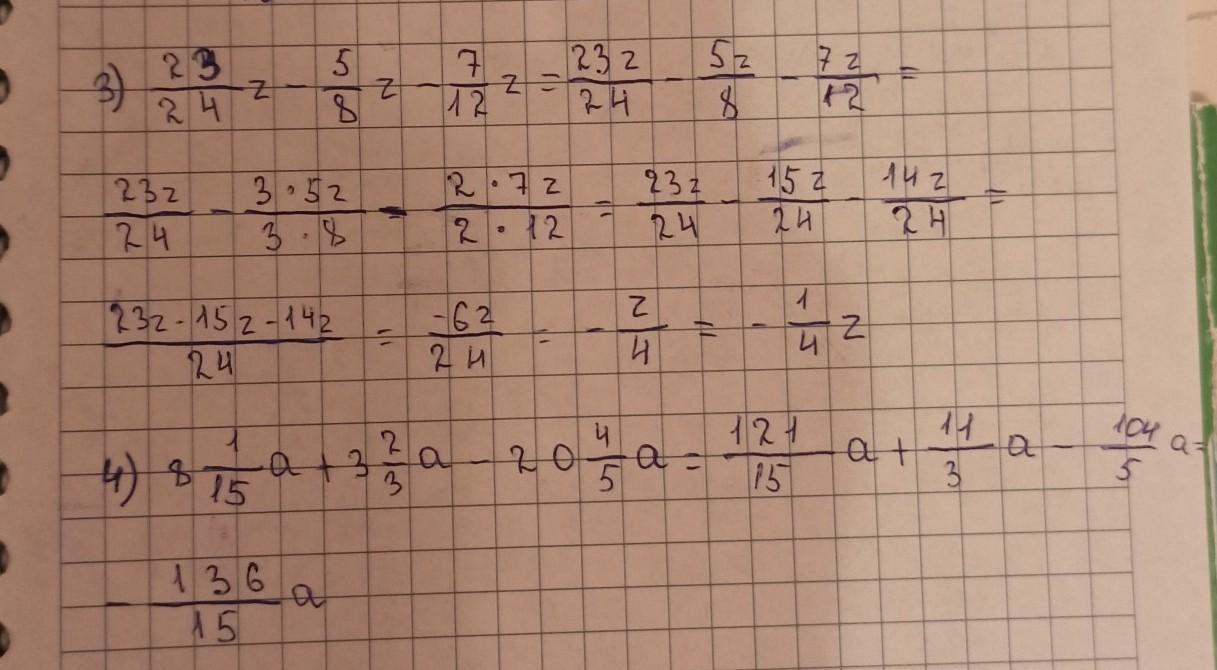 3) 23/24 z - 5/8 z - 7/12 z = 23z/24 - 5z/8 - 7z/12 =
23z/24 - 3·5z/3·8 - 2·7z/2·12 = 23z/24 - 15z/24 - 14z/24 =
23z-15z-14z/24 = -6z/24 = - z/4 = - 1/4 z
4) 8 1/15 a + 3 2/3 a - 20 4/5 a = 121/15 a + 11/3 a - 104/5 a =
- 136/15 a